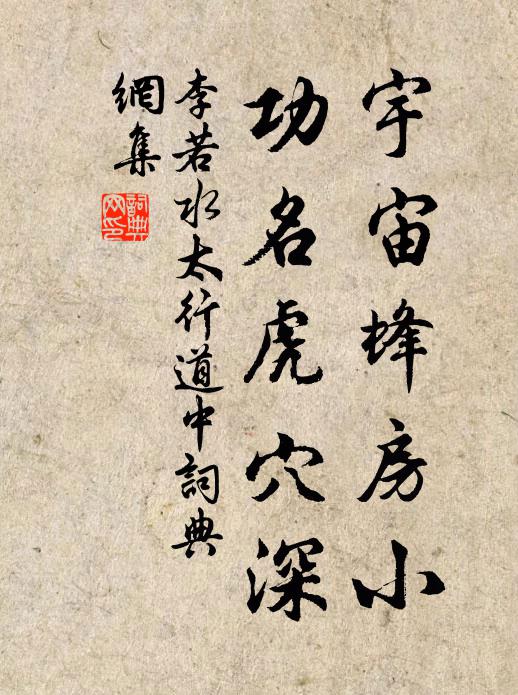 宇宙蜂房小
功名虎穴深
李若水太行道中詞典
網集
詞典
网印